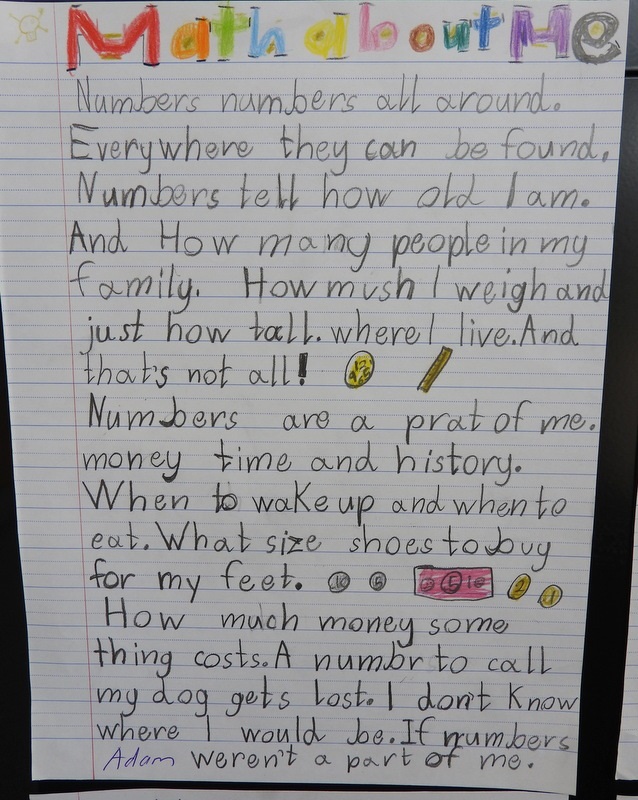 Math about Me
Numbers numbers all around.
Everywhere they can be found.
Numbers tell how old I am.
And How many people in my
family. How mush I weigh and
just how tall. where I live. And
that's not all!
Numbers are a prat of me.
money time and history.
When to wake up and when to
eat. What size shoes to buy
for my feet. 10 5 5 10 2 1
How much money some
thing costs. A numbr to call
my dog gets lost. I don't know
where I would be. If numbers
Adam weren't a part of me.